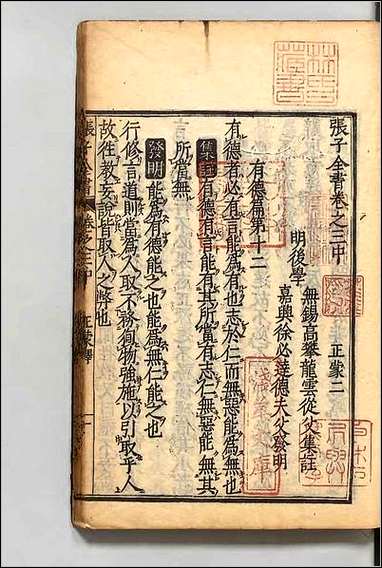 張子全書卷之三中　正蒙二
明後學　無錫高攀龍雲從父集註
嘉興徐必達德夫父發明
有德篇第十二
有德者必有言能爲有也志於仁而無惡能爲無也
集註有德有言能有其所當有志仁無惡能無其
所當無
發明能爲有德能之也能爲無仁能之也
行修言道則當爲人取不務徇物強施以引取乎人
故往教妄說皆取人之弊也
張子全書　卷之三中　正蒙釋　一